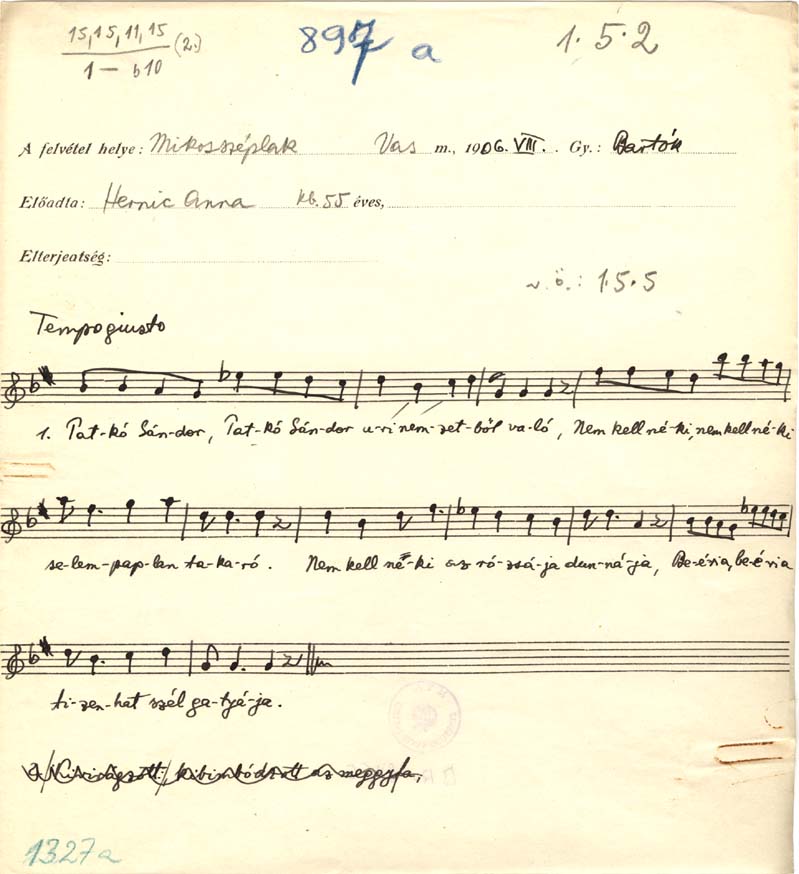 15, 15, 11, 15 (2.)
1 — b10
897 a
1·5·2
A felvétel helye: Mikosszéplak Vas m., 1906. VIII. Gy.: Bartók
Előadta: Hernic Anna kb. 55 éves,
Elterjeatség:
v. ö.: 1·5·5
Tempo giusto
1. Pat-kó Sán-dor, Pat-kó Sán-dor u-ri nem-zet-ből va-ló, Nem kell né-ki, nem kell né-ki
se-lem-pap-lan ta-ka-ró. Nem kell né-ki az ró-zsá-ja dun-ná-ja, Be-é-ria, be-é-ria
ti-zen-hat szél ga-tyá-ja.
kibimbódzott az meggyfa,
1327a